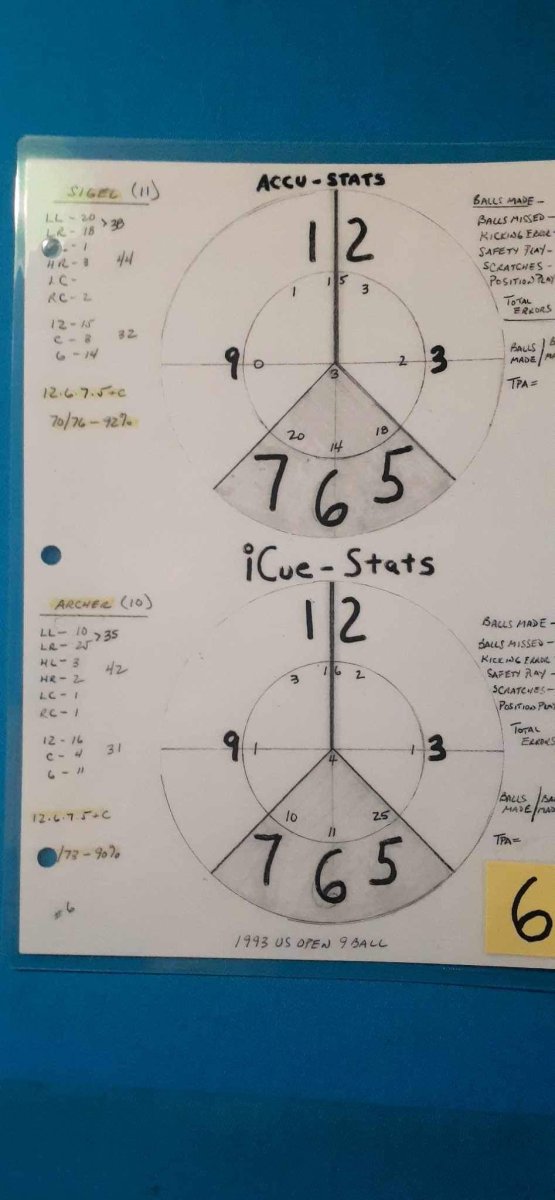 ACCU-STATS
SIGEL (11)
LL - 20 > 38
LR - 18
L - 1
HR - 3 44
LC -
RC - 2
12 - 15
C - 3 32
6 - 14
12.6.7.5+C
70/76 - 92%
1 2
1 15 3
9 0 2 3
3
20 14 18
7 6 5
BALLS MADE -
BALLS MISSED -
KICKING ERROR -
SAFETY PLAY -
SCRATCHES -
POSITION PLAY
TOTAL
ERRORS
BALLS
MADE /
TPA =
iCue-Stats
ARCHER (10)
LL - 10 > 35
LR - 25
HL - 3 42
HR - 2
LC - 1
RC - 1
12 - 16
C - 4 31
6 - 11
12.6.7.5+C
/73 - 90%
#6
1 2
3 16 2
9 1 1 3
4
10 11 25
7 6 5
BALLS MADE -
BALLS MISSED -
KICKING ERROR
SAFETY PLAY -
SCRATCHES -
POSITION PLAY
TOTAL
ERRORS
BALLS
MADE /
TPA =
6
1993 US OPEN 9 BALL